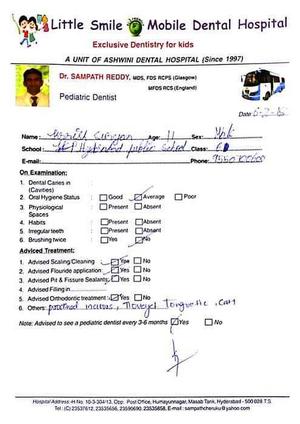 Little Smile Mobile Dental Hospital
Exclusive Dentistry for kids
A UNIT OF ASHWINI DENTAL HOSPITAL (Since 1997)
Dr. SAMPATH REDDY, MDS, FDS RCPS (Glasgow)
MFDS RCS (England)
Pediatric Dentist
Date:
Name: Age: 11 Sex: Male
School: public School Class: 6
E-mail: Phone:
On Examination:
1. Dental Caries in :
(Cavities)
2. Oral Hygiene Status : Good Average Poor
3. Physiological : Present Absent
Spaces
4. Habits : Present Absent
5. Irregular teeth : Present Absent
6. Brushing twice : Yes No
Adviced Treatment:
1. Advised Scaling/Cleaning : Yes No
2. Advised Flouride application : Yes No
3. Advised Pit & Fissure Sealants : Yes No
4. Advised Filling in
5. Advised Orthodontic treatment : Yes No
6. Others:
Note: Advised to see a pediatric dentist every 3-6 months Yes No
Hospital Address:-H No. 10-3-304/13, Opp. Post Office, Humayunnagar, Masab Tank, Hyderabad - 500 028 T.S.
Tel : (C) 23537612, 23535656, 23590690, 23535858, E-mail : sampathcheruku@yahoo.com